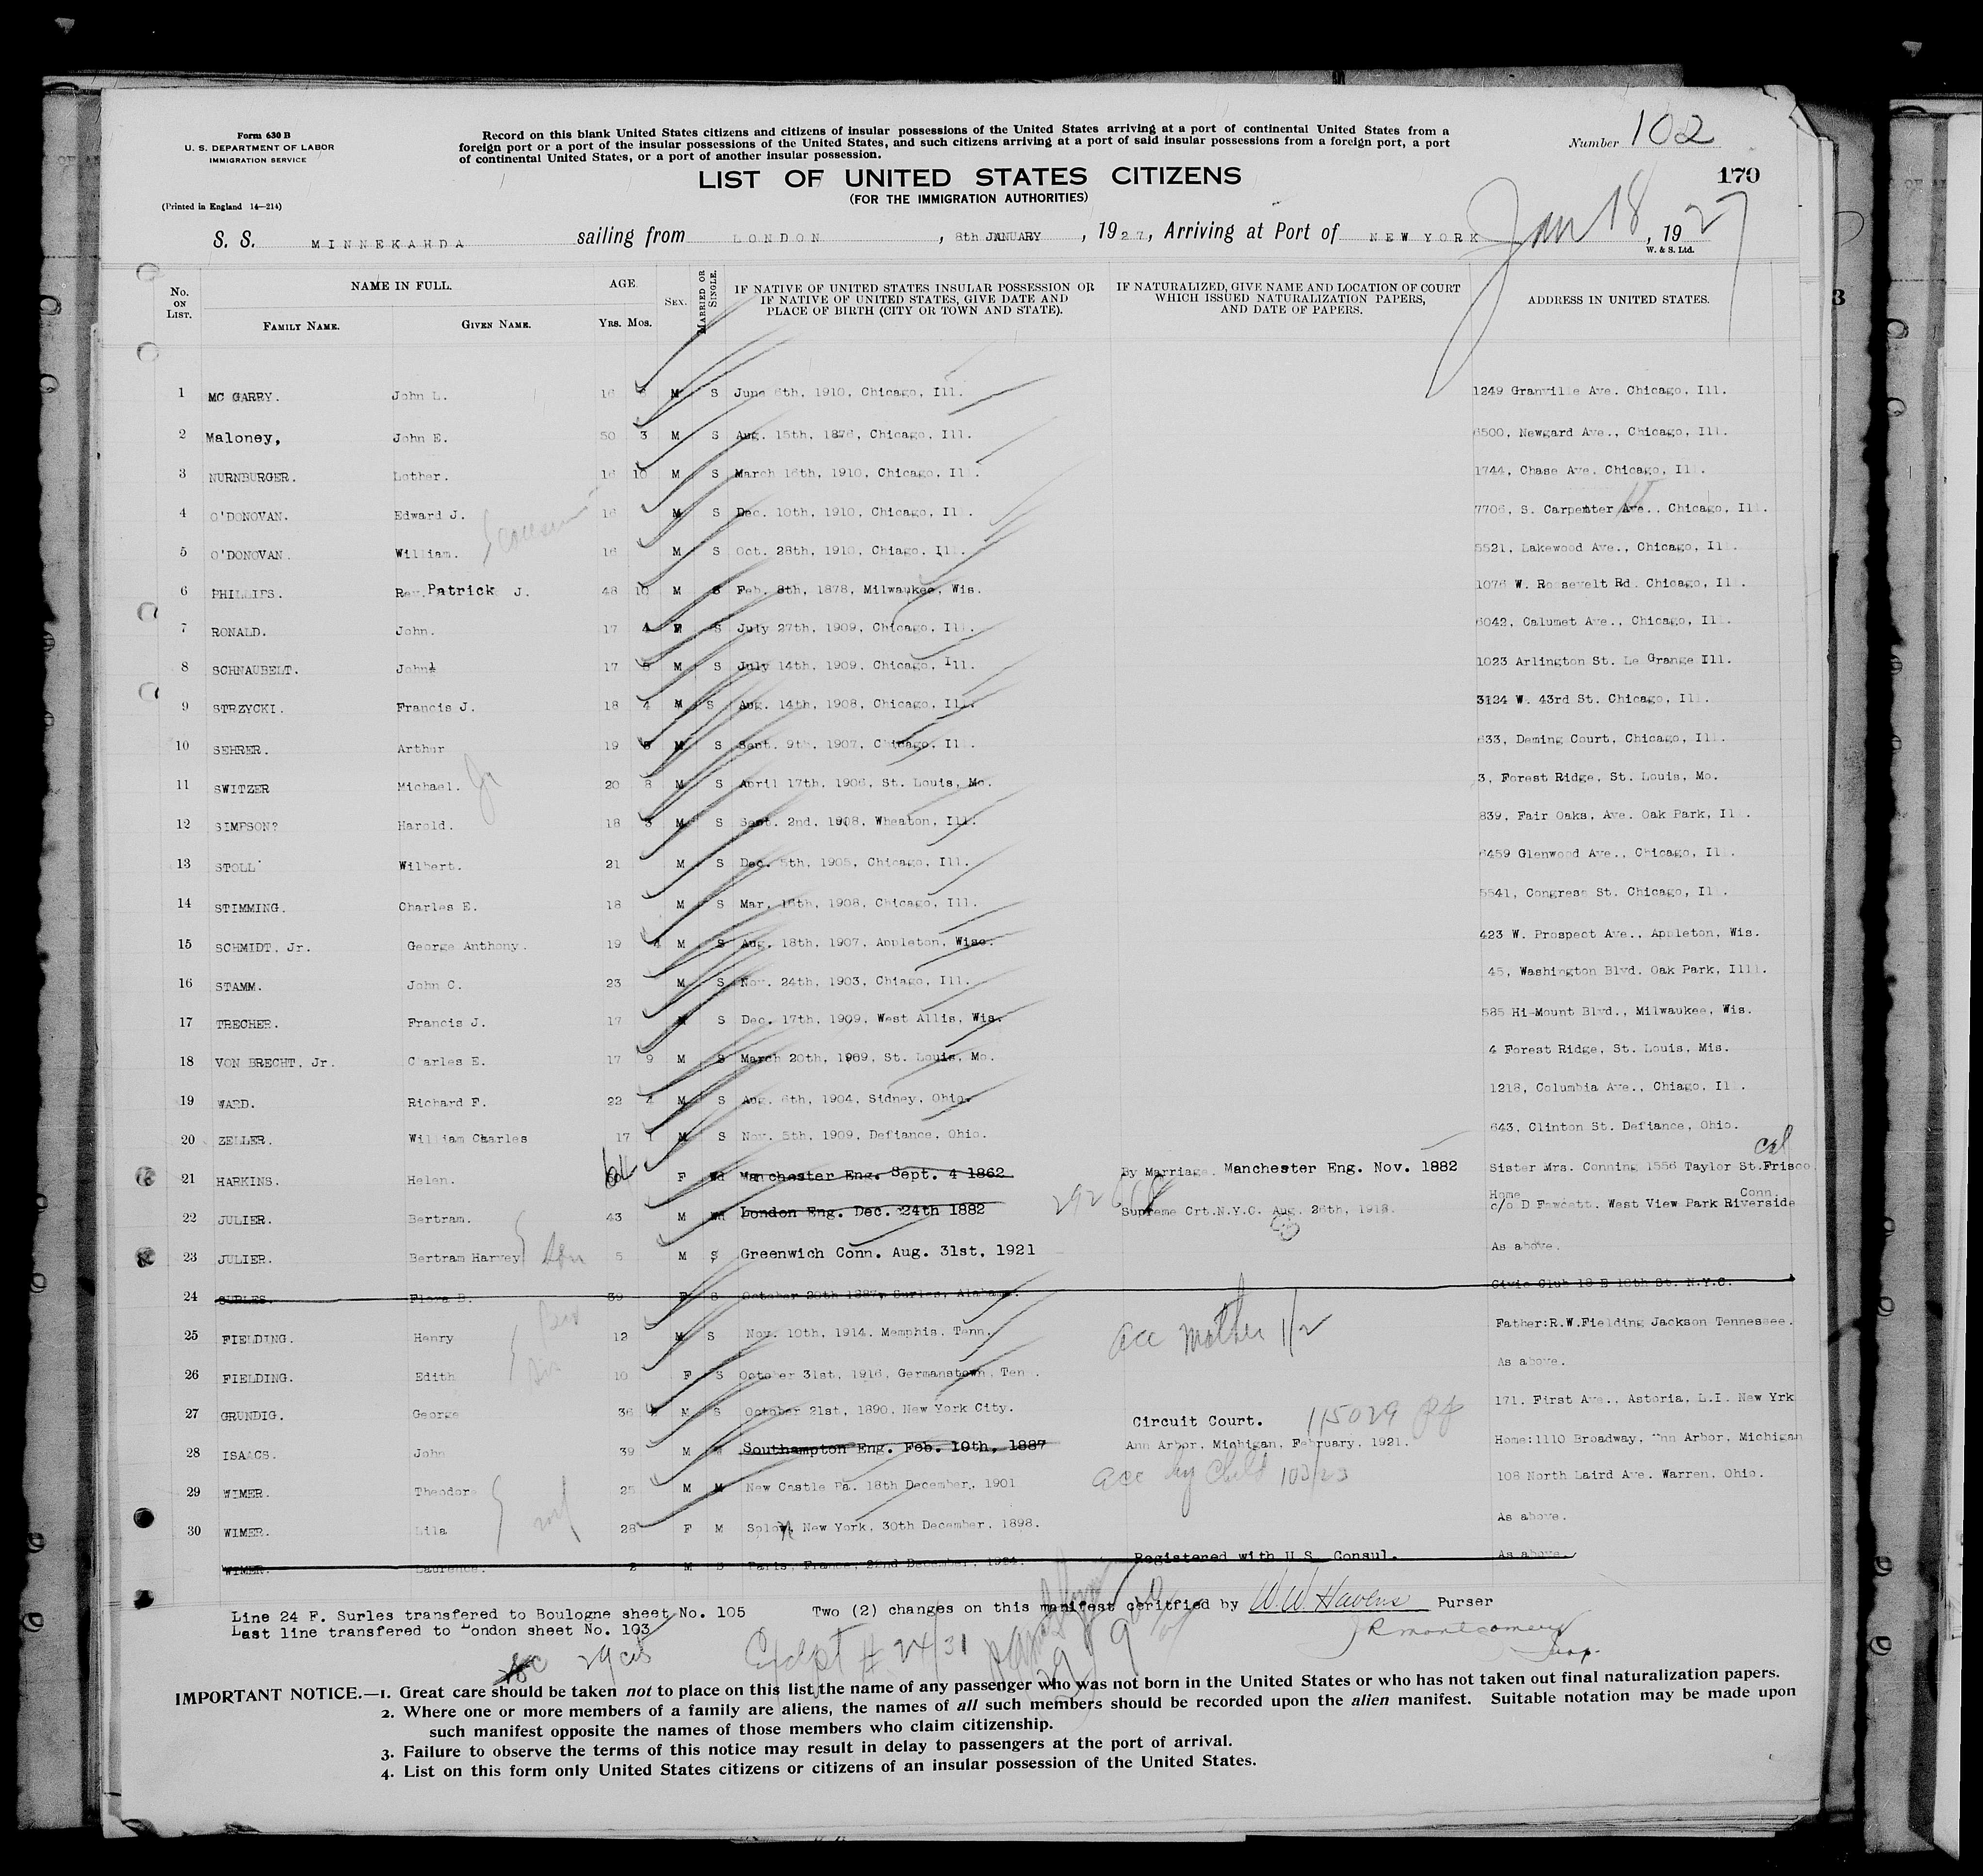 Form 630 B
U. S. DEPARTMENT OF LABOR
IMMIGRATION SERVICE
(Printed in England 14—214)
Record on this blank United States citizens and citizens of insular possessions of the United States arriving at a port of continental United States from a
foreign port or a port of the insular possessions of the United States, and such citizens arriving at a port of said insular possessions from a foreign port, a port
of continental United States, or a port of another insular possession.
Number 102
LIST OF UNITED STATES CITIZENS
(FOR THE IMMIGRATION AUTHORITIES)
170
S. S. MINNEKAHDA sailing from LONDON, 8th JANUARY, 1927, Arriving at Port of NEW YORK Jan 18, 1927
W. & S. Ltd.
No. ON LIST. NAME IN FULL. FAMILY NAME. GIVEN NAME. AGE YRS. MOS. SEX. MARRIED OR SINGLE. IF NATIVE OF UNITED STATES INSULAR POSSESSION OR IF NATIVE OF UNITED STATES, GIVE DATE AND PLACE OF BIRTH (CITY OR TOWN AND STATE). IF NATURALIZED, GIVE NAME AND LOCATION OF COURT WHICH ISSUED NATURALIZATION PAPERS, AND DATE OF PAPERS. ADDRESS IN UNITED STATES.
1 MC GARRY. John L. 16 M S June 6th, 1910, Chicago, Ill. 1249 Granville Ave. Chicago, Ill.
2 Maloney, John E. 50 3 M S Aug. 15th, 1876, Chicago, Ill. 6500, Newgard Ave., Chicago, Ill.
3 NURNBURGER. Lother. 16 10 M S March 16th, 1910, Chicago, Ill. 1744, Chase Ave. Chicago, Ill.
4 O'DONOVAN. Edward J. 16 M S Dec. 10th, 1910, Chicago, Ill. 7706, S. Carpenter Ave., Chicago, Ill.
5 O'DONOVAN. William. 16 M S Oct. 28th, 1910, Chiago, Ill. 5521, Lakewood Ave., Chicago, Ill.
6 PHILLIPS. Rev. Patrick J. 48 10 M S Feb. 8th, 1878, Milwaukee, Wis. 1076 W. Roosevelt Rd. Chicago, Ill.
7 RONALD. John. 17 S July 27th, 1909, Chicago, Ill. 6042, Calumet Ave., Chicago, Ill.
8 SCHNAUBELT. John 17 5 M S July 14th, 1909, Chicago, Ill. 1023 Arlington St. Le Grange Ill.
9 STRZYCKI. Francis J. 18 4 M S Aug. 14th, 1908, Chicago, Ill. 3124 W. 43rd St. Chicago, Ill.
10 SEHRER. Arthur 19 M S Sept. 9th, 1907, Chicago, Ill. 633, Deming Court, Chicago, Ill.
11 SWITZER Michael. Jr 20 8 M S April 17th, 1906, St. Louis, Mo. 3, Forest Ridge, St. Louis, Mo.
12 SIMPSON? Harold. 18 3 M S Sept. 2nd, 1908, Wheaton, Ill. 839, Fair Oaks, Ave. Oak Park, Ill.
13 STOLL Wilbert. 21 M S Dec. 5th, 1905, Chicago, Ill. 6459 Glenwood Ave., Chicago, Ill.
14 STIMMING. Charles E. 18 M S Mar. 16th, 1908, Chicago, Ill. 5541, Congress St. Chicago, Ill.
15 SCHMIDT, Jr. George Anthony. 19 4 M S Aug. 18th, 1907, Appleton, Wisc. 423 W. Prospect Ave., Appleton, Wis.
16 STAMM. John C. 23 M S Nov. 24th, 1903, Chiago, Ill. 45, Washington Blvd. Oak Park, Illl.
17 TRECHER. Francis J. 17 M S Dec. 17th, 1909, West Allis, Wis. 585 Hi-Mount Blvd., Milwaukee, Wis.
18 VON BRECHT, Jr. Charles E. 17 9 M S March 20th, 1909, St. Louis, Mo. 4 Forest Ridge, St. Louis, Mis.
19 WARD. Richard F. 22 4 M S Aug. 6th, 1904, Sidney, Ohio. 1218, Columbia Ave., Chiago, Ill.
20 ZELLER. William Charles 17 1 M S Nov. 5th, 1909, Defiance, Ohio. 643, Clinton St. Defiance, Ohio.
21 HARKINS. Helen. 64 F Wd Manchester Eng. Sept. 4 1862 By Marriage. Manchester Eng. Nov. 1882 Sister Mrs. Conning 1556 Taylor St. Frisco Cal
22 JULIER. Bertram. 43 M Wd London Eng. Dec. 24th 1882 Supreme Crt.N.Y.C. Aug. 26th, 1918. Home c/o D Fawcett. West View Park Riverside Conn.
23 JULIER. Bertram Harvey Son 5 M S Greenwich Conn. Aug. 31st, 1921 As above.
24 SURLES. Flora B. 39 F S October 20th 1887, Surles, Alabama. Civic Club 18 E 10th St. N.Y.C.
25 FIELDING. Henry 12 M S Nov. 10th, 1914. Memphis, Tenn. acc mother 1/2 Father:R.W.Fielding Jackson Tennessee.
26 FIELDING. Edith 10 F S October 31st, 1916, Germanstown, Ten. As above.
27 GRUNDIG. George 36 M S October 21st, 1890, New York City. 171, First Ave., Astoria, L.I. New Yrk
28 ISAACS. John 39 M M Southampton Eng. Feb. 10th, 1887 Circuit Court. 115029 Ann Arbor, Michigan, February, 1921. Home:1110 Broadway, Ann Arbor, Michigan
29 WIMER. Theodore 25 M M New Castle Pa. 18th December, 1901 acc by child 103/23 108 North Laird Ave. Warren, Ohio.
30 WIMER. Lila wf 28 F M Solon, New York, 30th December, 1898. As above.
WIMER. Laurence. 2 M S Paris, France, 22nd December, 1924. Registered with U.S. Consul. As above.
Line 24 F. Surles transfered to Boulogne sheet No. 105 Two (2) changes on this manifest ceritfied by W. W. Havens Purser
Last line transfered to London sheet No. 103
29 cits Except # 24/31
JR Montgomery
Insp.
IMPORTANT NOTICE.—1. Great care should be taken not to place on this list the name of any passenger who was not born in the United States or who has not taken out final naturalization papers.
2. Where one or more members of a family are aliens, the names of all such members should be recorded upon the alien manifest. Suitable notation may be made upon
such manifest opposite the names of those members who claim citizenship.
3. Failure to observe the terms of this notice may result in delay to passengers at the port of arrival.
4. List on this form only United States citizens or citizens of an insular possession of the United States.